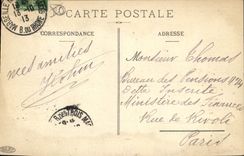 CARTE POSTALE
CORRESPONDANCE
ADRESSE
13
B. DU RHONE
mes amitiés
Monsieur Thomas
Bureau des Pensions
Dette Inscrite
Ministère des Finances
Rue de Rivoli
Paris